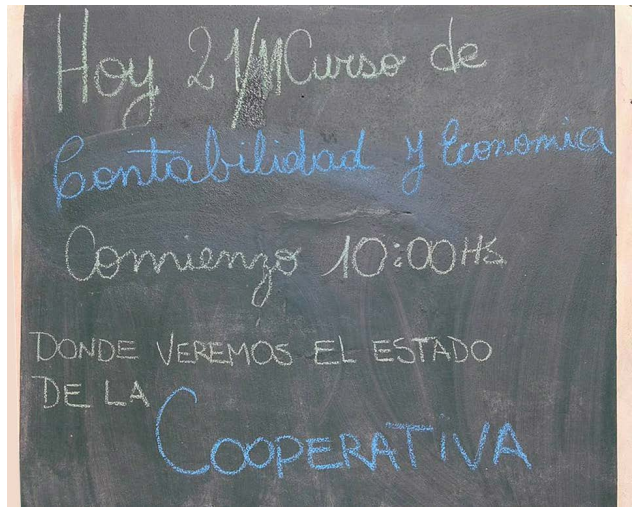 Hoy 21/VII Curso de
Contabilidad y Economia
Comienzo 10:00 Hs
DONDE VEREMOS EL ESTADO
DE LA
COOPERATIVA